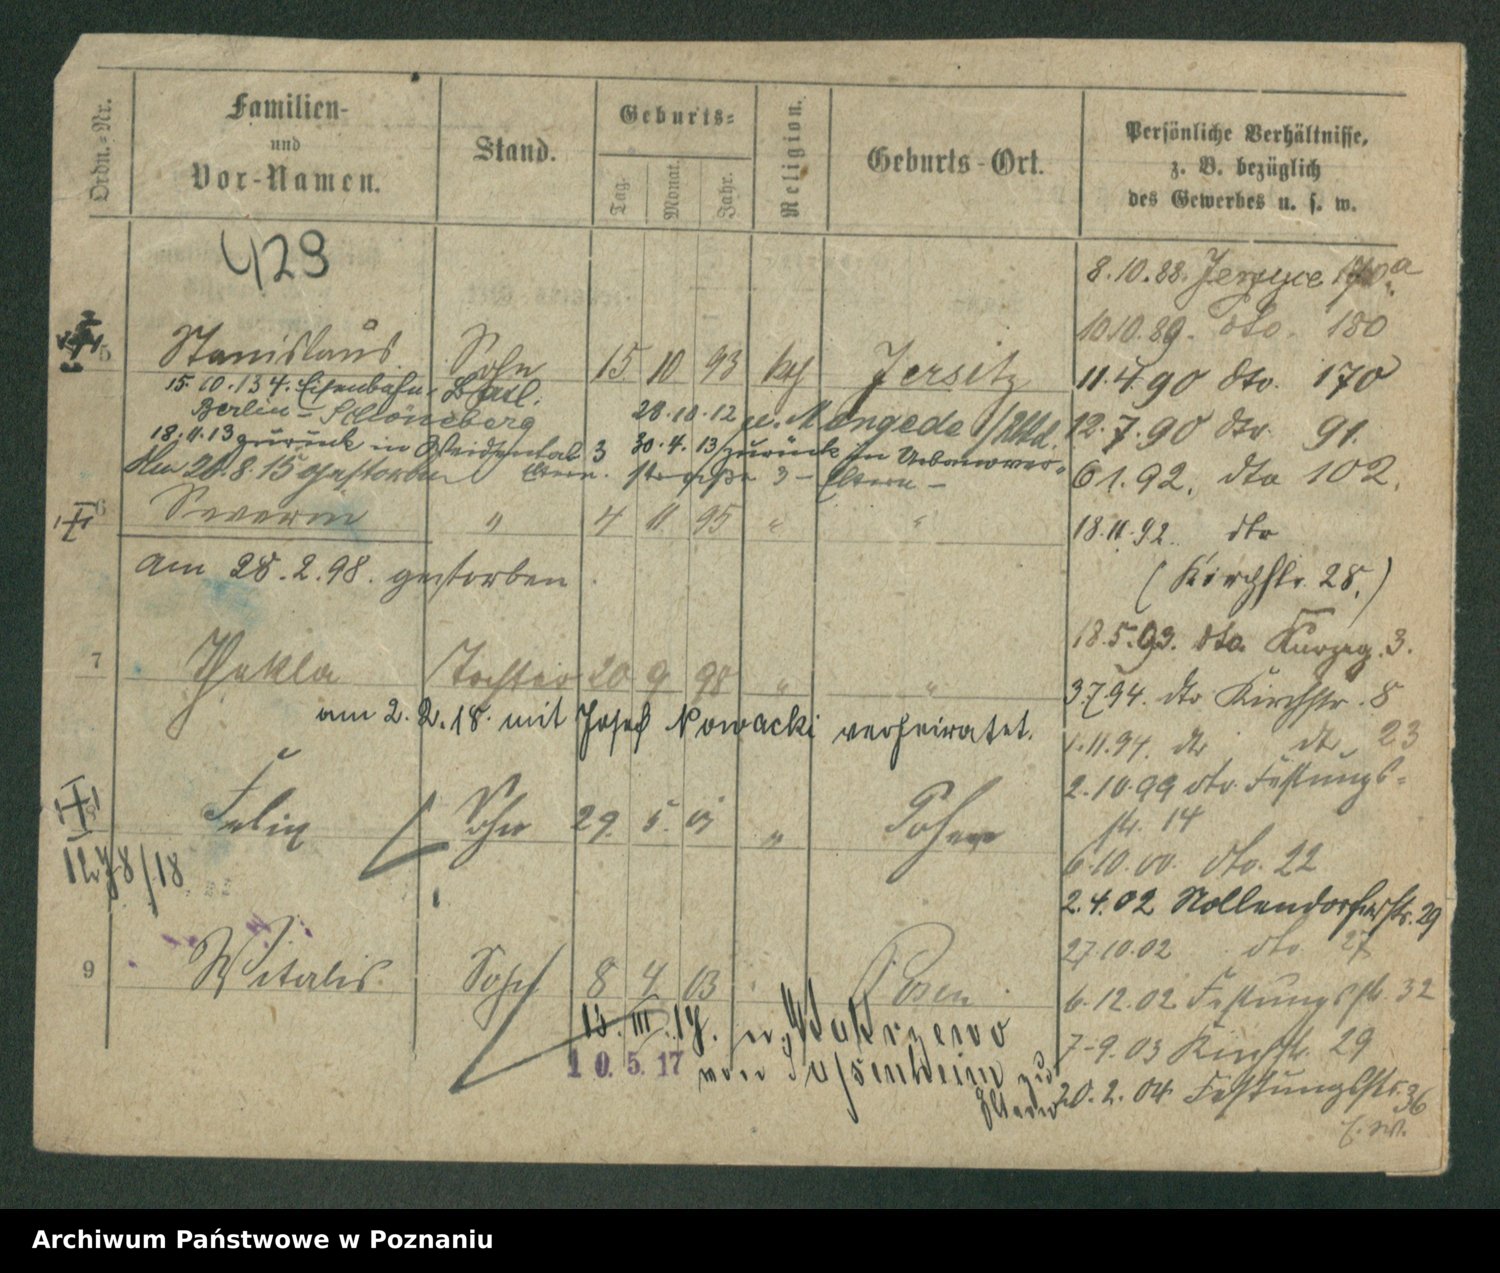 Ordn.-Nr.
Familien-
und
Vor-Namen.
Stand.
Geburts-
Tag.
Monat.
Jahr.
Religion.
Geburts-Ort.
Persönliche Verhältnisse,
z. B. bezüglich
des Gewerbes u. s. w.
429
5 Stanislaus Sohn 15 10 93 kath Jersitz
15.10.13 z. 4. Eisenbahn-Batl.
Berlin-Schöneberg
28.10.12 n. Mengede
18.11.13 zurück in Weidental 3
Eltern.
30.4.13 zurück in
straße 3 - Eltern -
Am 20.8.15 gestorben
6 Severin " 4 11 95 " "
am 28.2.98. gestorben
7 Thekla Tochter 20 9 98 " "
am 2.2.18. mit Josef Nowacki verheiratet.
Felix Sohn 29. 5. 01 " Posen
12.78/18
9 Witalis Sohn 8 4 03 Posen
13. III. 17. n. Wakrzewo
10.5.17 von Sassenheim zu
Eltern
8.10.88. Jerzyce 170a
10.10.89. dto. 180
11.4.90 dto. 170
12.7.90 dto. 91.
6.1.92. dto 102.
18.11.92. dto
(Kirchstr. 28.)
18.5.93. dto 3.
3.7.94. dto Kirchstr. 8
1.11.94. dto dto 23
2.10.99 dto Festungs-
str. 14
6.10.00. dto. 22
2.4.02 Nollendorferstr. 29
27.10.02 dto 27
6.12.02 Festungsstr. 32
7.9.03 Kirchstr. 29
20.2.04 Festungsstr. 36
Archiwum Państwowe w Poznaniu